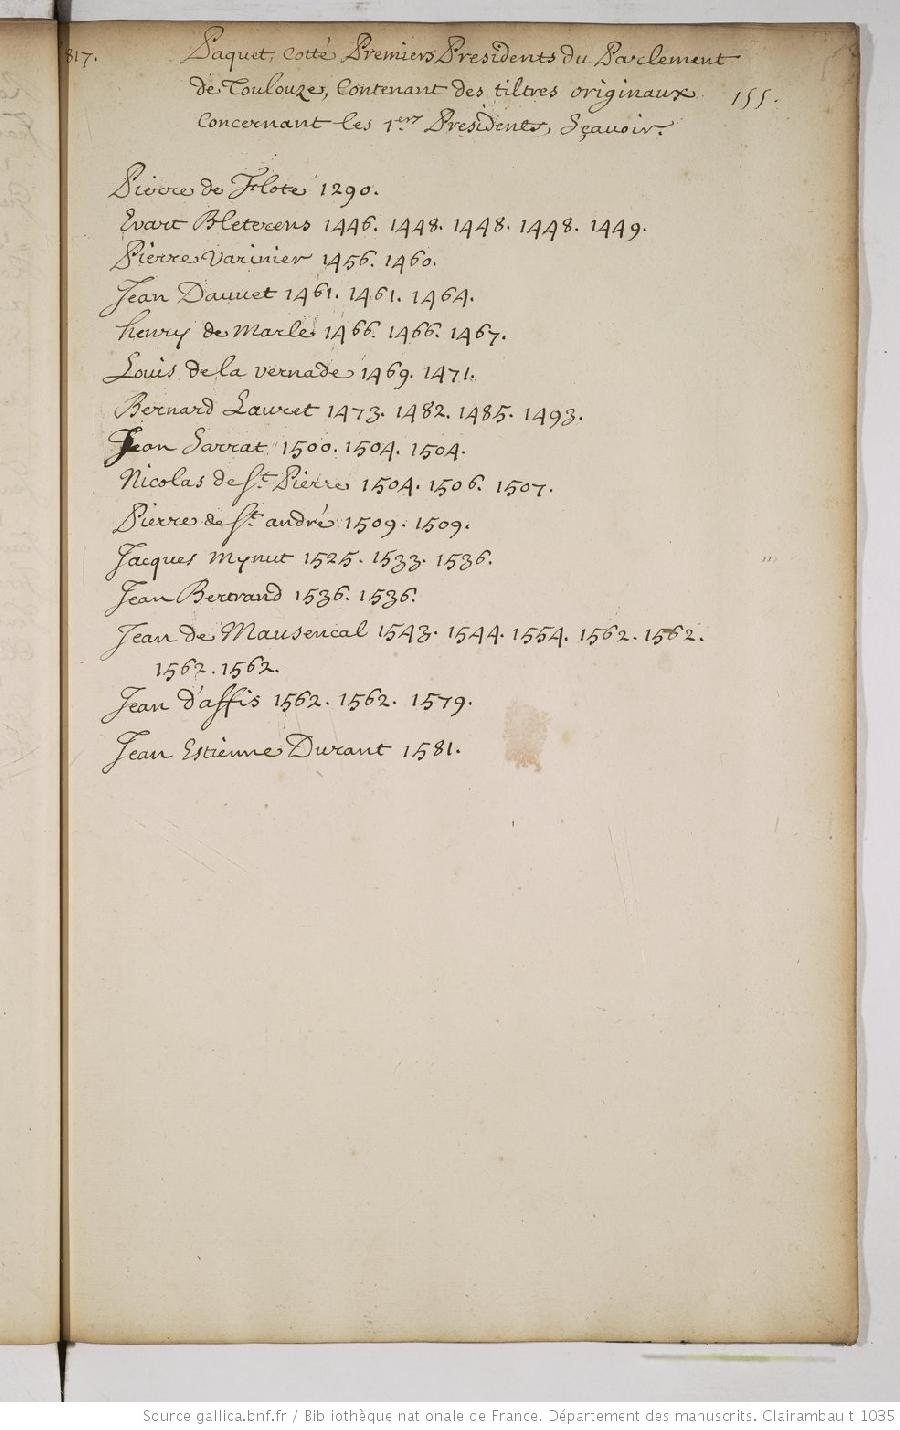 817.
Paquet, Cotté Premiers Presidents du Parlement
de Toulouze, Contenant des tiltres originaux
155.
Concernant les 1ers Presidents, Sçavoir.
Pierre de Flote 1290.
Evart Bleterens 1446. 1448. 1448. 1448. 1449.
Pierre Varinier 1456. 1460.
Jean Dauvet 1461. 1461. 1464.
henry de Marle 1466. 1466. 1467.
Louis de la vernade 1469. 1471.
Bernard Lauret 1473. 1482. 1485. 1493.
Jean Sarrat 1500. 1504. 1504.
Nicolas de St. Pierre 1504. 1506. 1507.
Pierre de St. andré 1509. 1509.
Jacques mynut 1525. 1533. 1536.
Jean Bertrand 1536. 1536.
Jean de Mausencal 1543. 1544. 1554. 1562. 1562.
1562. 1562.
Jean d'affis 1562. 1562. 1579.
Jean Estienne Durant 1581.
Source gallica.bnf.fr / Bibliothèque nationale de France. Département des manuscrits. Clairambault 1035